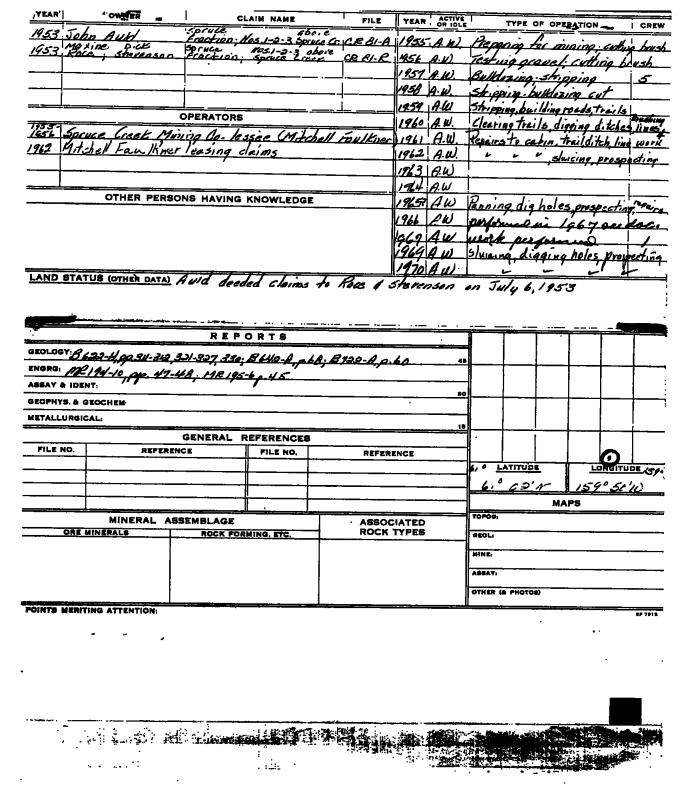 YEAR OWNER CLAIM NAME FILE
1953 John Auld Spruce Fraction; Nos. 1-2-3 above Spruce Cr. CB 81-A
1953 Maxine Ross; Dick Stevenson Spruce Fraction; Nos. 1-2-3 above Spruce Creek CB 81-R
OPERATORS
Spruce Creek Mining Co-lessee (Mitchell Faulkner)
1962 Mitchell Faulkner leasing claims
OTHER PERSONS HAVING KNOWLEDGE
YEAR ACTIVE OR IDLE TYPE OF OPERATION CREW
1955 A.W. Preparing for mining; cutting brush
1956 A.W. Testing gravel, cutting brush
1957 A.W. Bulldozing, stripping 5
1958 A.W. Stripping-bulldozing cut
1959 A.W Stripping, building roads, trails
1960 A.W. Clearing trails, digging ditches, brushing lines
1961 A.W. Repairs to cabin, trail, ditch, line work
1962 A.W. " " ", sluicing, prospecting
1963 A.W
1964 A.W
1965 A.W Panning, dig holes, prospecting, repairs
1966 performed in 1967
1969 A.W work performed 1
1969 A.W. Sluicing, digging holes, prospecting
1970 A.W. " " " "
LAND STATUS (OTHER DATA) Auld deeded claims to Ross & Stevenson on July 6, 1953
REPORTS
GEOLOGY: B622-H, pp. 311-312, 321-327, 330; B640-A, p. ; B722-A, p. 60 45
ENGRG: MR 194-10, pp. 47-48; MR 195-6, p. 45
ASSAY & IDENT: 30
GEOPHYS. & GEOCHEM:
METALLURGICAL: 15
GENERAL REFERENCES
FILE NO. REFERENCE FILE NO. REFERENCE
LATITUDE LONGITUDE 159°
159° W
MAPS
MINERAL ASSEMBLAGE ASSOCIATED ROCK TYPES
ORE MINERALS ROCK FORMING, ETC.
TOPOG:
GEOL:
MINE:
ASSAY:
OTHER (& PHOTOS)
POINTS MERITING ATTENTION: